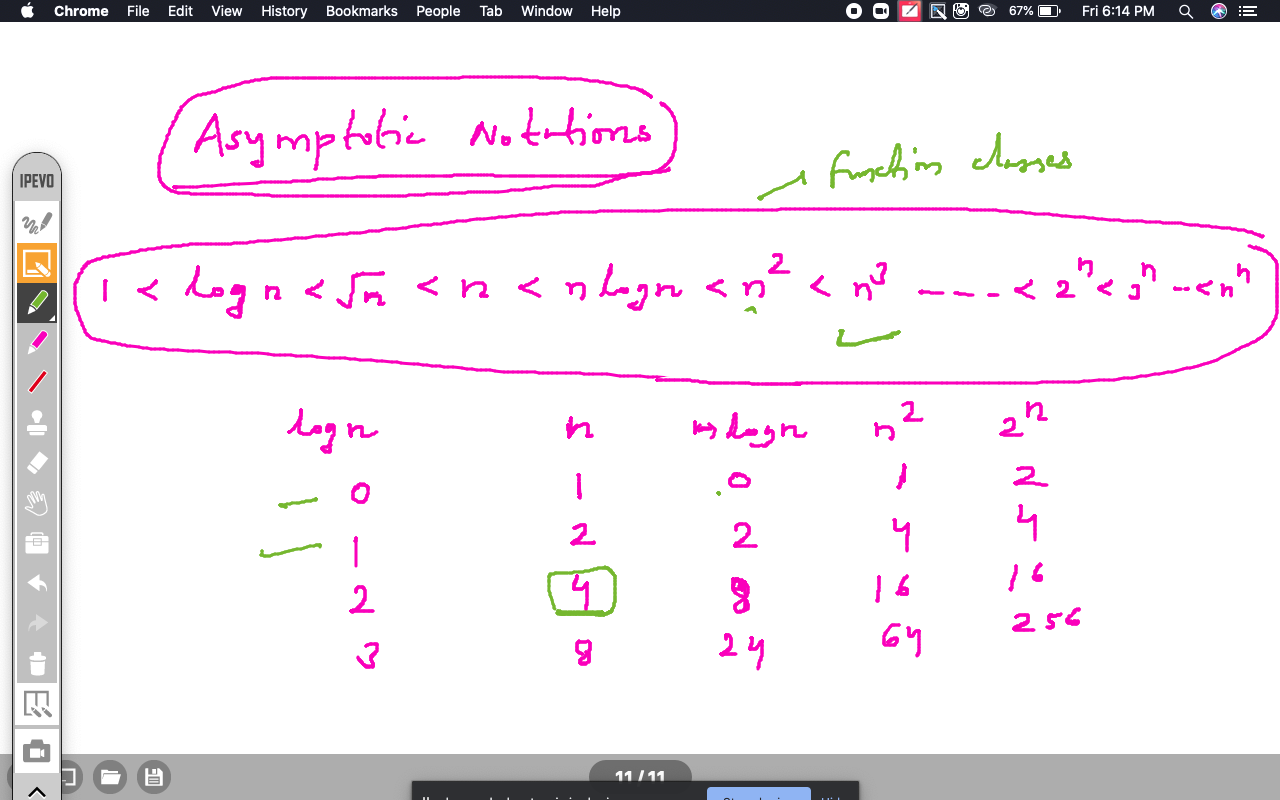 Chrome File Edit View History Bookmarks People Tab Window Help 67% Fri 6:14 PM
Asymptotic Notations
function classes
IPEVO
1 < log n < √n < n < n log n < n² < n³ ---- < 2ⁿ < 3ⁿ -- < nⁿ
log n n n log n n² 2ⁿ
0 1 0 1 2
1 2 2 4 4
2 4 8 16 16
3 8 24 64 256
11 / 11